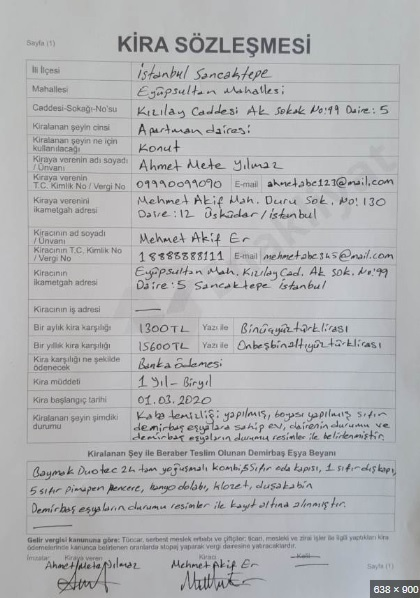 Sayfa (1)
KİRA SÖZLEŞMESİ
İli İlçesi İstanbul Sancaktepe
Mahallesi Eyüpsultan Mahallesi
Caddesi-Sokağı-No'su Kızılay Caddesi Ak sokak No:99 Daire: 5
Kiralanan şeyin cinsi Apartman dairesi
Kiralanan şeyin ne için
kullanılacağı Konut
Kiraya verenin adı soyadı
/ Ünvanı Ahmet Mete Yılmaz
Kiraya verenin
T.C. Kimlik No / Vergi No 09990099090 E-mail ahmetabc123@mail.com
Kiraya verenini
ikametgah adresi Mehmet Akif Mah. Duru Sok. No: 130
Daire: 12 Üsküdar / İstanbul
Kiracının ad soyadı
/ Ünvanı Mehmet Akif Er
Kiracının T.C. Kimlik
No / Vergi No 18888888111 E-mail mehmetabc345@mail.com
Kiracının
ikametgah adresi Eyüpsultan Mah. Kızılay Cad. Ak Sok. No:99
Daire: 5 Sancaktepe İstanbul
Kiracının iş adresi
Bir aylık kira karşılığı 1300TL Yazı ile Binüçyüztürklirası
Bir yıllık kira karşılığı 15600TL Yazı ile Onbeşbinaltıyüztürklirası
Kira karşılığı ne şekilde
ödenecek Banka ödemesi
Kira müddeti 1 Yıl - Biryıl
Kira başlangıç tarihi 01.03.2020
Kiralanan şeyin şimdiki
durumu Kaba temizliği yapılmış, boyası yapılmış sıfır
demirbaş eşyalara sahip ev, dairenin durumu ve
demirbaş eşyaların durumu resimler ile belirlenmiştir.
Kiralanan Şey ile Beraber Teslim Olunan Demirbaş Eşya Beyanı
Baymak Duotec 24 tam yoğuşmalı kombi, 5 sıfır oda kapısı, 1 sıfır dış kapı,
5 sıfır pimapen pencere, banyo dolabı, klozet, duşakabin
Demirbaş eşyaların durumu resimler ile kayıt altına alınmıştır.
Gelir vergisi kanununa göre: Tüccar, serbest meslek erbabı ve çiftçiler; ticari, mesleki ve zirai işler ile ilgili yaptıkları kira
ödemelerinde kanunca belirlenen oranlarda stopaj yaparak vergi dairesine yatıracaklardır.
İmzalar: Kiraya veren Kiracı Kefil
Ahmet Mete Yılmaz Mehmet Akif Er
Sayfa (1)
638 × 900